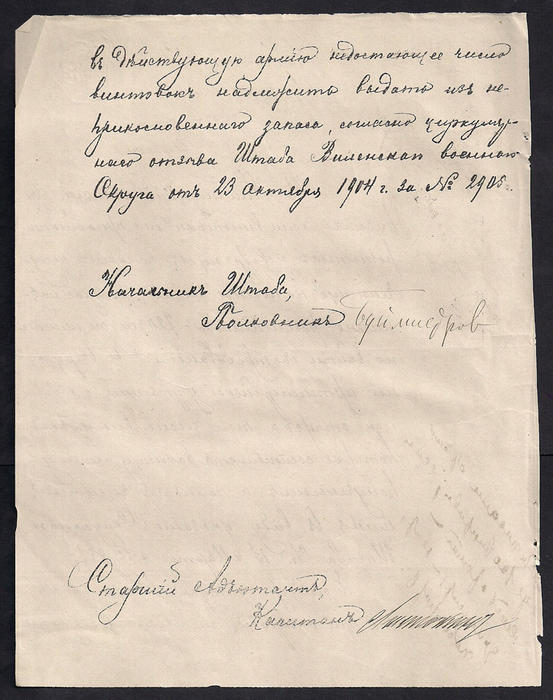 въ дѣйствующую армію недостающее число
винтовокъ надлежитъ выдать изъ не-
прикосновеннаго запаса, согласно циркуляр-
наго отзыва Штаба Виленскаго военнаго
Округа отъ 23 октября 1904 г. за № 2905
Начальникъ Штаба,
Полковникъ
Старшій Адъютантъ,
Капитанъ